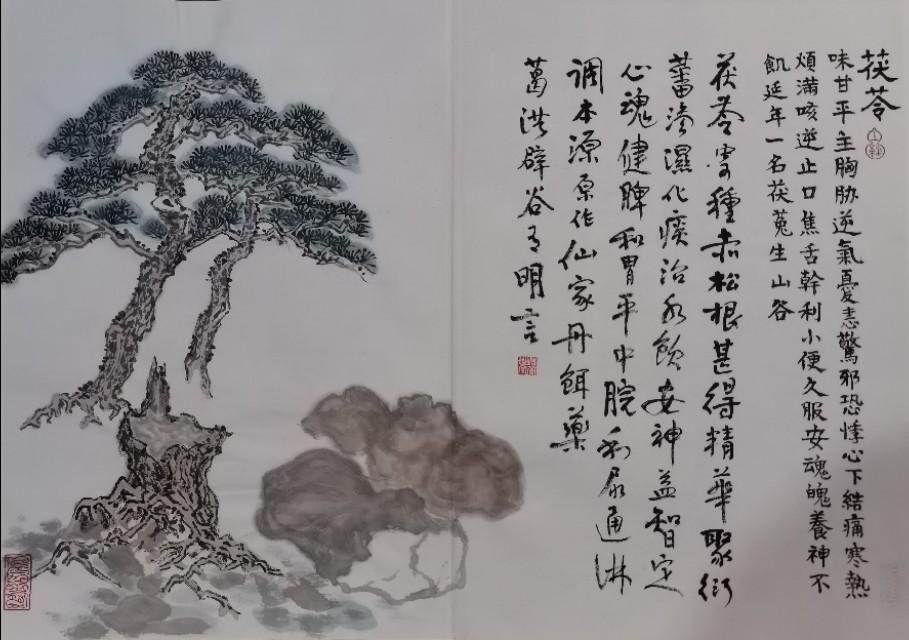 茯苓
味甘平主胸胁逆氣憂恚驚邪恐悸心下結痛寒熱
煩滿咳逆止口焦舌幹利小便久服安魂魄養神不
飢延年一名茯菟生山谷
茯苓寄種赤松根甚得精華聚衍
蕃滲濕化痰治水飲安神益智定
心魂健脾和胃平中脘利尿通淋
调本源原作仙家丹餌藥
葛洪辟谷有明言